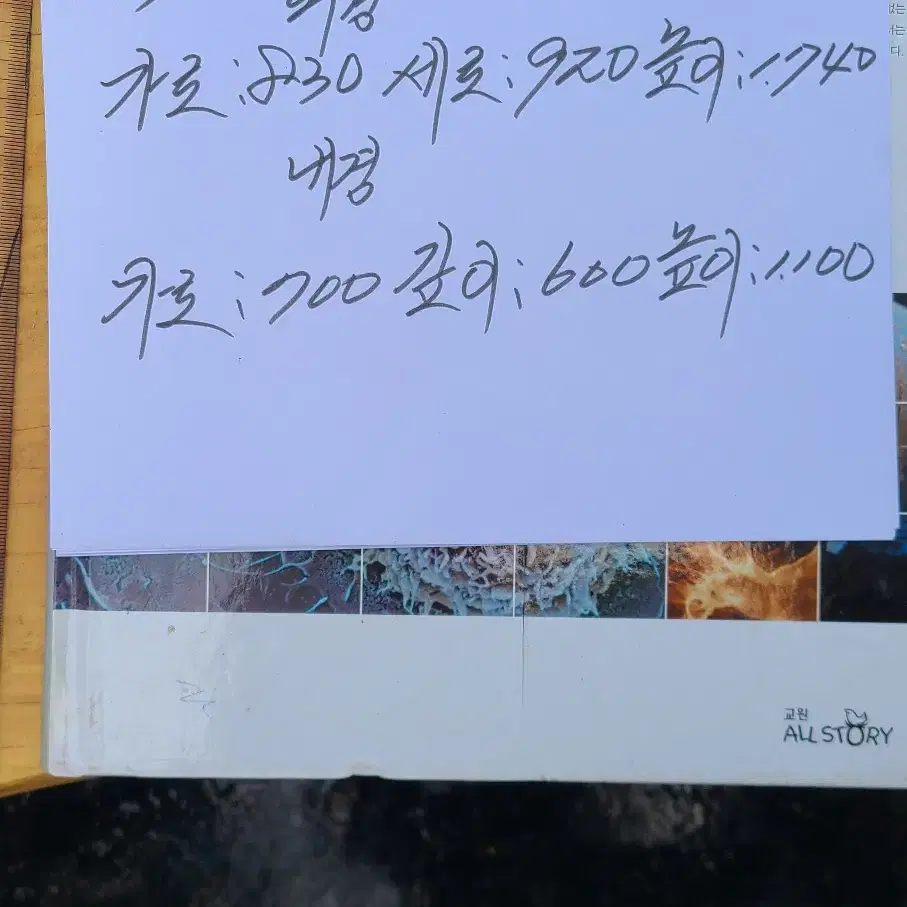 없는
가로:830 세로:920 높이:1.740
내경
가로:700 깊이:600 높이:1.100
교원
ALL STORY